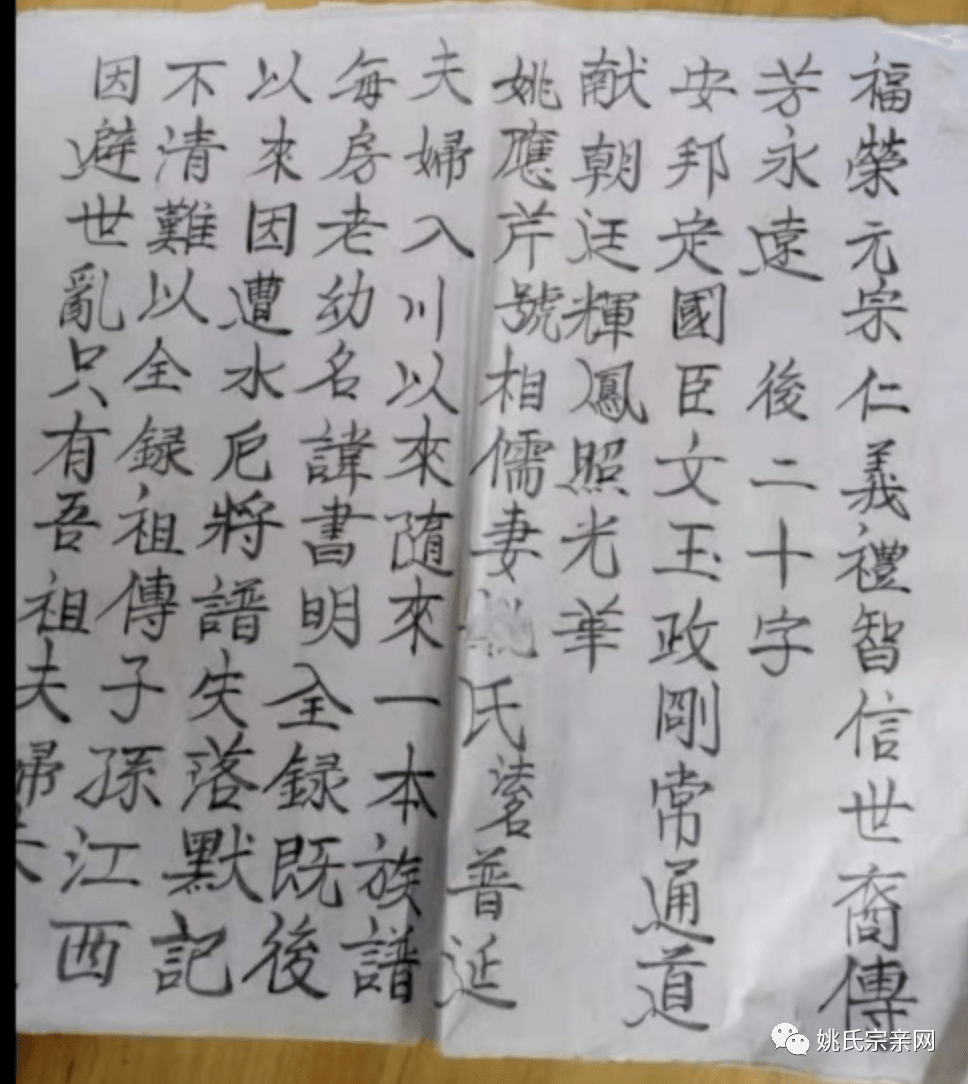 福榮元宗仁義禮智信世裔傳
芳永遠 後二十字
安邦定國臣文玉政剛常通道
献朝廷輝鳳照光華
姚應芹號相儒妻氏法名普延
夫婦入川以來随來一本族譜
每房老幼名諱書明全録既後
以來因遭水厄將譜失落默記
不清難以全録祖傳子孫江西
因避世亂只有吾祖夫婦
姚氏宗亲网